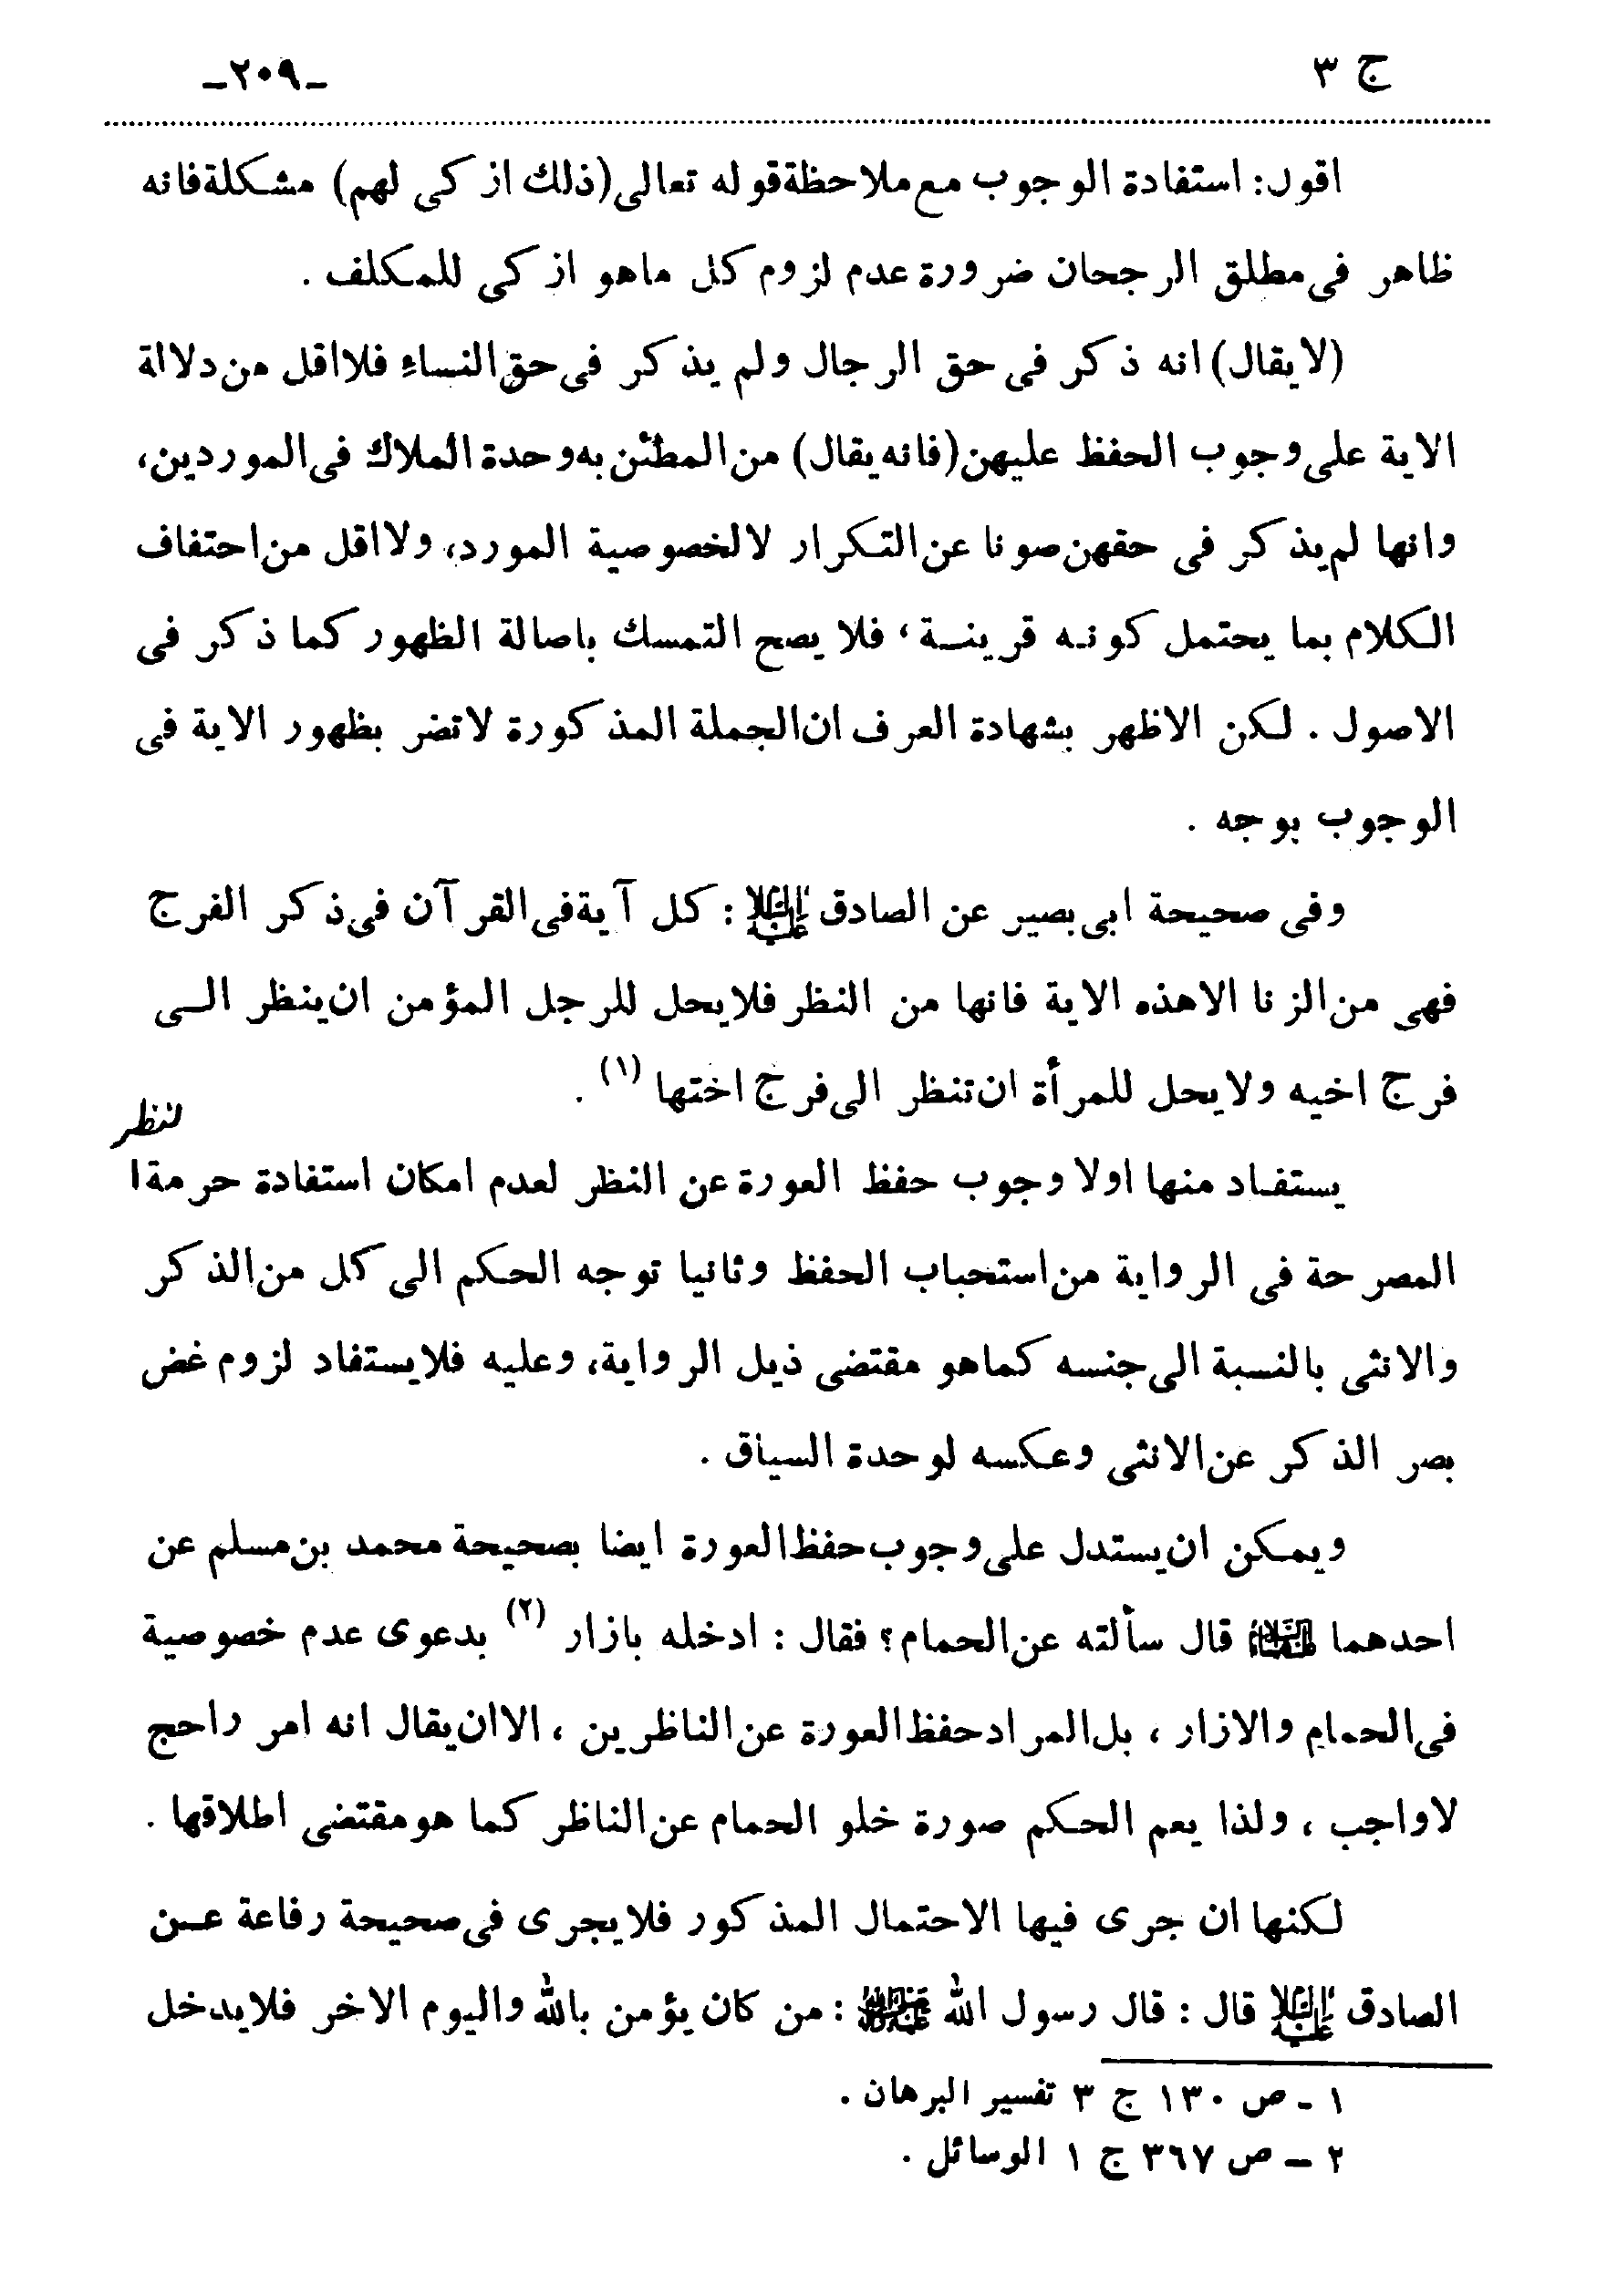 ج ٣ -٢٠٩-
اقول: استفادة الوجوب مع ملاحظة قوله تعالى (ذلك ازكى لهم) مشكلة فانه
ظاهر فى مطلق الرجحان ضرورة عدم لزوم كل ماهو ازكى للمكلف .
(لا يقال) انه ذكر فى حق الرجال ولم يذكر فى حق النساء فلا اقل من دلالة
الاية على وجوب الحفظ عليهن (فانه يقال) من المطئن به وحدة الملاك فى الموردين،
وانها لم يذكر فى حقهن صونا عن التكرار لا لخصوصية المورد، ولا اقل من احتفاف
الكلام بما يحتمل كونه قرينة ، فلا يصح التمسك باصالة الظهور كما ذكر فى
الاصول . لكن الاظهر بشهادة العرف ان الجملة المذكورة لا تضر بظهور الاية فى
الوجوب بوجه .
وفى صحيحة ابى بصير عن الصادق عليه السلام : كل آية فى القرآن فى ذكر الفرج
فهى من الزنا الا هذه الاية فانها من النظر فلا يحل للرجل المؤمن ان ينظر الى
فرج اخيه ولا يحل للمرأة ان تنظر الى فرج اختها (١) .
لنظر
يستفاد منها اولا وجوب حفظ العورة عن النظر لعدم امكان استفادة حرمة ا
المصرحة فى الرواية من استحباب الحفظ وثانيا توجه الحكم الى كل من الذكر
والانثى بالنسبة الى جنسه كماهو مقتضى ذيل الرواية، وعليه فلا يستفاد لزوم غض
بصر الذكر عن الانثى وعكسه لوحدة السياق .
ويمكن ان يستدل على وجوب حفظ العورة ايضا بصحيحة محمد بن مسلم عن
احدهما عليهما السلام قال سألته عن الحمام؟ فقال : ادخله بازار (٢) بدعوى عدم خصوصية
فى الحمام والازار ، بل المراد حفظ العورة عن الناظرين ، الا ان يقال انه امر راحج
لا واجب ، ولذا يعم الحكم صورة خلو الحمام عن الناظر كما هو مقتضى اطلاقها .
لكنها ان جرى فيها الاحتمال المذكور فلا يجرى فى صحيحة رفاعة عن
الصادق عليه السلام قال : قال رسول الله صلى الله عليه وآله : من كان يؤمن بالله واليوم الاخر فلا يدخل
١ - ص ١٣٠ ج ٣ تفسير البرهان .
٢ - ص ٣٦٧ ج ١ الوسائل .